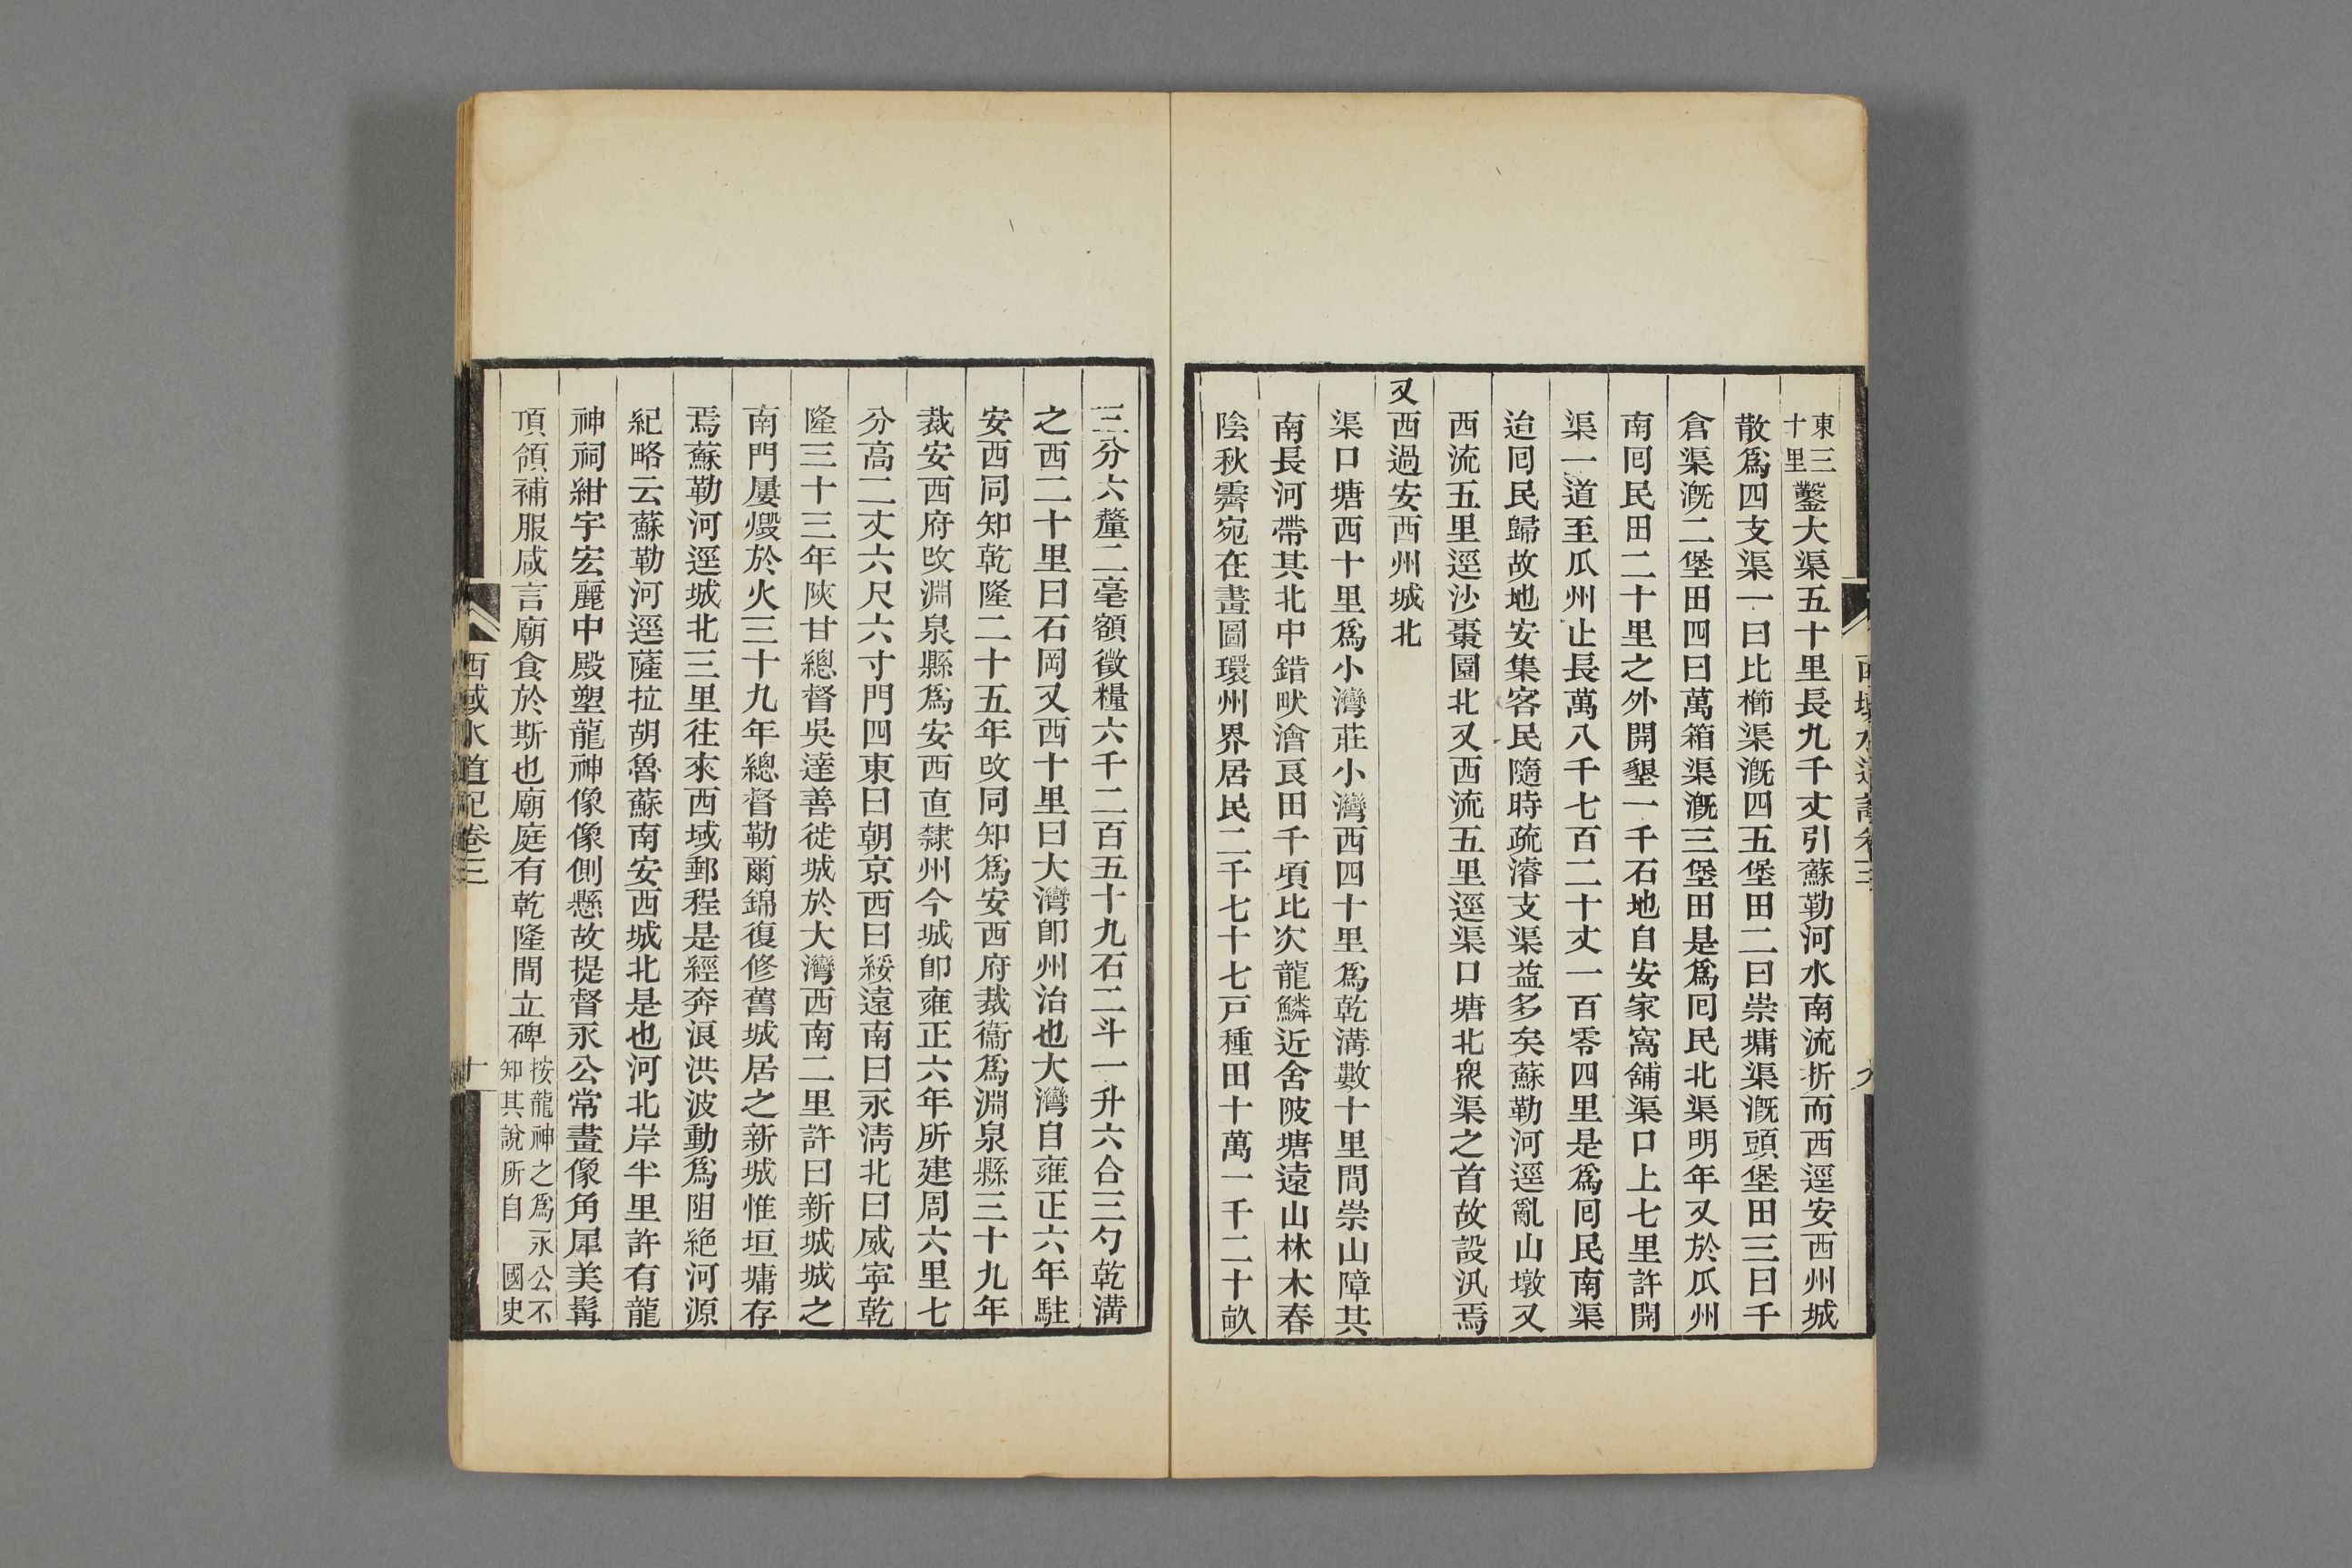 東三十里鑿大渠五十里長九千丈引蘇勒河水南流折而西逕安西州城
散爲四支渠一曰比櫛渠漑四五堡田二曰崇墉渠漑頭堡田三曰千
倉渠漑二堡田四曰萬箱渠漑三堡田是爲囘民北渠明年又於瓜州
南囘民田二十里之外開墾一千石地自安家窩舖渠口上七里許開
渠一道至瓜州止長萬八千七百二十丈一百零四里是爲囘民南渠
迨囘民歸故地安集客民隨時疏濬支渠益多矣蘇勒河逕亂山墩又
西流五里逕沙棗園北又西流五里逕渠口塘北衆渠之首故設汛焉
又西過安西州城北
渠口塘西十里爲小灣莊小灣西四十里爲乾溝數十里間崇山障其
南長河帶其北中錯畎澮良田千頃比次龍鱗近舍陂塘遠山林木春
陰秋霽宛在畫圖環州界居民二千七十七戸種田十萬一千二十畝
西域水道記卷三
三分六釐二毫額徵糧六千二百五十九石二斗一升六合三勺乾溝
之西二十里曰石岡又西十里曰大灣卽州治也大灣自雍正六年駐
安西同知乾隆二十五年改同知爲安西府裁衞爲淵泉縣三十九年
裁安西府改淵泉縣爲安西直隸州今城卽雍正六年所建周六里七
分高二丈六尺六寸門四東曰朝京西曰綏遠南曰永淸北曰威寍乾
隆三十三年陝甘總督吳達善徙城於大灣西南二里許曰新城城之
南門屢燬於火三十九年總督勒爾錦復修舊城居之新城惟垣墉存
焉蘇勒河逕城北三里往來西域郵程是經奔浪洪波動爲阻絶河源
紀略云蘇勒河逕薩拉胡魯蘇南安西城北是也河北岸半里許有龍
神祠紺宇宏麗中殿塑龍神像像側懸故提督永公常畫像角犀美髯
頂領補服咸言廟食於斯也廟庭有乾隆間立碑按龍神之爲永公不知其說所自 國史
西域水道記卷三
十